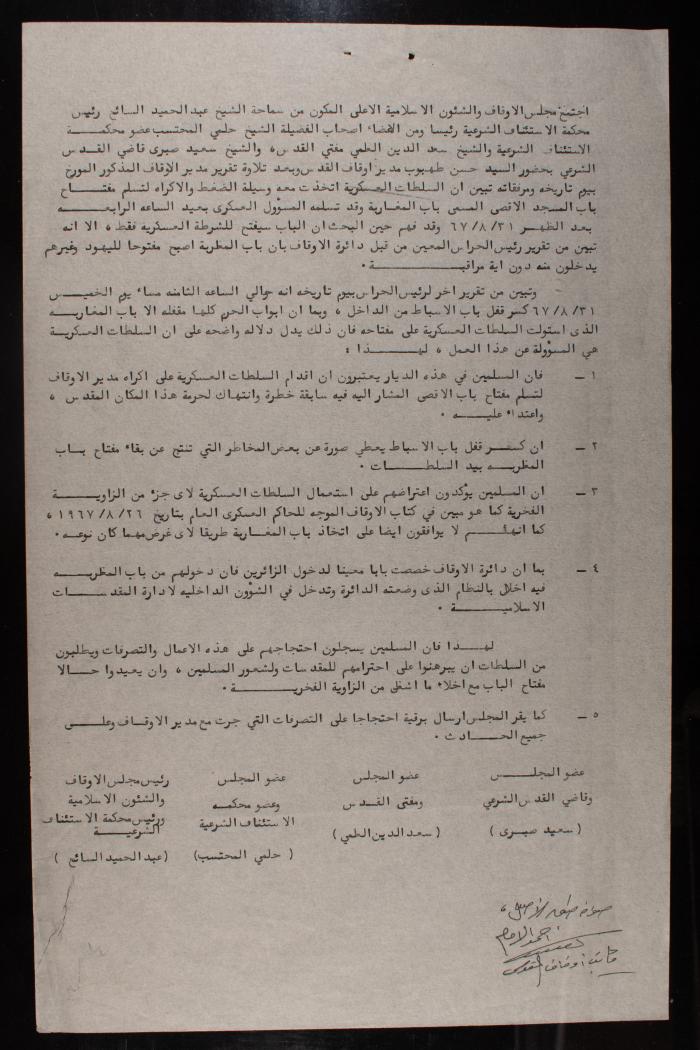 اجتمع مجلس الاوقاف والشئون الاسلامية الاعلى المكون من سماحة الشيخ عبد الحميد السائح رئيس
محكمة الاستئناف الشرعية رئيسا ومن الاعضاء اصحاب الفضيلة الشيخ حلمي المحتسب عضو محكمـــــة
الاستئناف الشرعية والشيخ سعد الدين العلمي مفتي القدس، والشيخ سعيد صبرى قاضي القــدس
الشرعي بحضور السيد حسن طهبوب مدير اوقاف القدس وبعد تلاوة تقرير مدير الاوقاف المذكور المؤرخ
بيوم تاريخه ومرفقاته تبين ان السلطات العسكرية اتخذت معه وسيلة الضغط والاكراه لتسلم مفتـــاح
باب المسجد الاقصى المسمى باب المغاربة وقد تسلمه المسؤول العسكرى بعيد الساعه الرابعــــه
بعد الظهــر ٦٧/٨/٣١ وقد فهم حين البحث ان الباب سيفتح للشرطة العسكريه فقط، الا انه
تبين من تقرير رئيس الحراس المعين من قبل دائرة الاوقاف بان باب المغاربة اصبح مفتوحا لليهود وغيرهم
يدخلون منه دون اية مراقبــــــــــة .
وتبين من تقرير اخر لرئيس الحراس بيوم تاريخه انه حوالي الساعه الثامنه مساء يوم الخميــس
٦٧/٨/٣١ كسر قفل باب الاسباط من الداخل، وبما ان ابواب الحرم كلها مقفله الا باب المغاربـــه
الذى استولت السلطات العسكرية على مفتاحه فان ذلك يدل دلاله واضحه على ان السلطات العسكريــة
هي المسؤولة عن هذا العمل، لهـــــــذا :
١ ـ فان المسلمين في هذه الديار يعتبرون ان اقدام السلطات العسكرية على اكراه مدير الاوقاف
لتسلم مفتاح باب الاقصى المشار اليه فيه سابقة خطرة وانتهاك لحرمة هذا المكان المقدس،
واعتداء عليــــه .
٢ ـ ان كســـر قفل باب الاسباط يعطي صورة عن بعض المخاطر التي تنتج عن بقاء مفتاح بــاب
المغربــه بيد السلطــــات .
٣ ـ ان المسلمين يؤكدون اعتراضهم على استعمال السلطات العسكرية لاى جزء من الزاويــــــة
الفخرية كما هو مبين في كتاب الاوقاف الموجه للحاكم العسكرى العام بتاريخ ١٩٦٧/٨/٢٦،
كما انهـــــم لا يوافقون ايضا على اتخاذ باب المغــاربة طريقا لاى غرض مهما كان نوعه .
٤ ـ بما ان دائرة الاوقاف خصصت بابا معينا لدخول الزائرين فان دخولهم من باب المغربـــه
فيه اخلال بالنظام الذى وضعته الدائرة وتدخل في الشؤون الداخليه لادارة المقدســـات
الاسلاميـــــــة .
لهــــذا فان المسلمين يسجلون احتجاجهم على هذه الاعمال والتصرفات ويطلبون
من السلطات ان يبرهنوا على احترامهم للمقدسات ولشعور المسلمين، وان يعيدوا حــــالا
مفتاح الباب مع اخلاء ما اشغل من الزاوية الفخريــــــــة .
٥ ـ كما يقر المجلس ارسال برقية احتجاجا على التصرفات التي جرت مع مدير الاوقــاف وعلــى
جميع الحــــــادث .
عضو المجلــــــس عضو المجلس عضو المجلس رئيس مجلس الاوقاف
وقاضي القدس الشرعي ومفتي القــدس وعضو محكمـه والشئون الاسلامية
الاستئناف الشرعية ورئيس محكمة الاستئناف
الشرعيـــة
( سعيد صبــرى ) ( سعد الدين العلمي ) ( حلمي المحتسب ) ( عبد الحميد السائح )
صورة طبق الأصل،
احمد الامام
كاتب اوقاف القدس